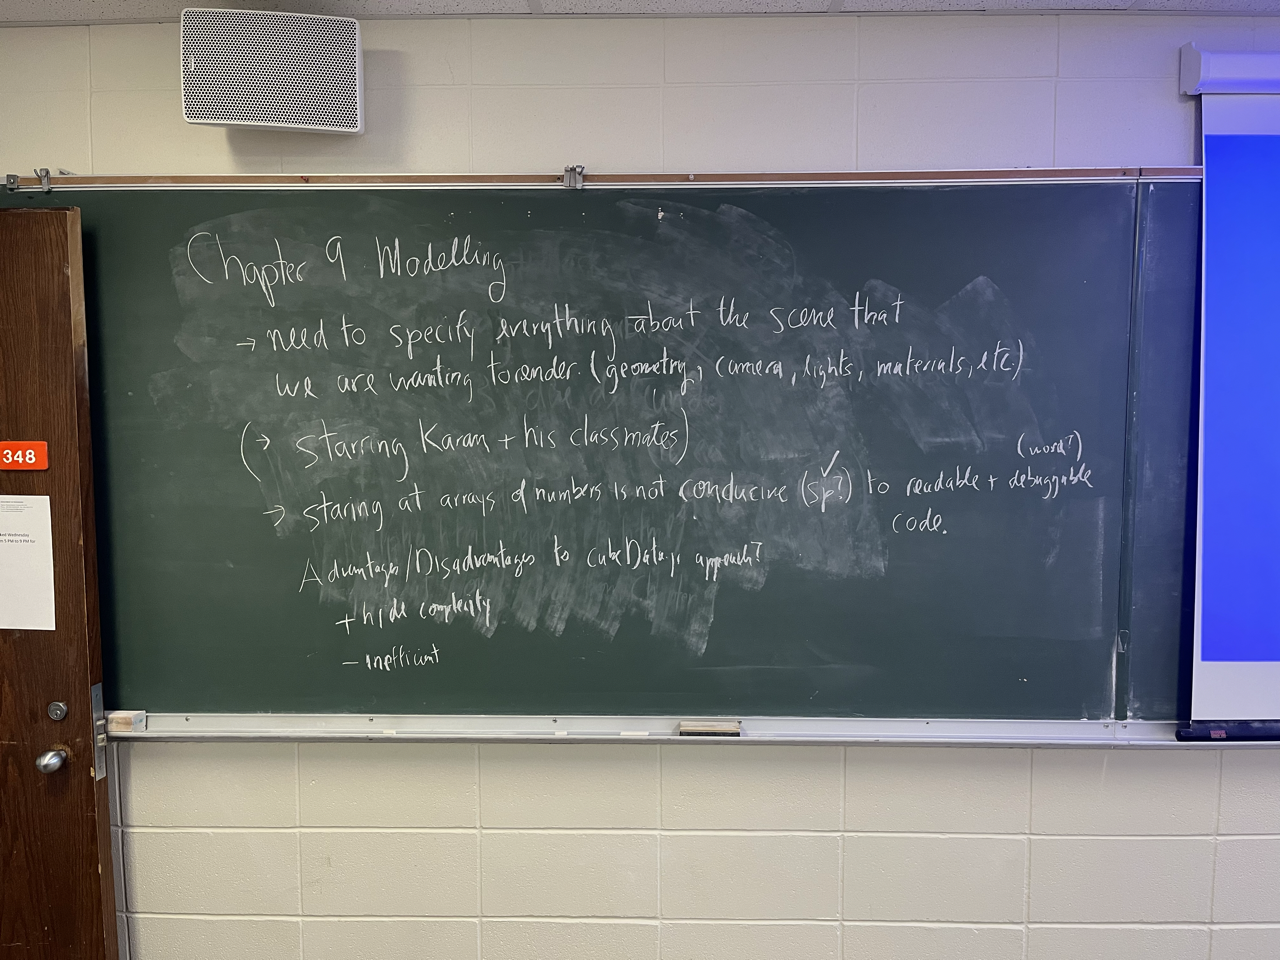 Chapter 9 Modelling
→ need to specify everything about the scene that
we are wanting to render. (geometry, camera, lights, materials, etc.)
(→ starring Karan + his classmates)
(word?)
→ staring at arrays of numbers is not conducive (sp?) ✓ to readable + debuggable
code.
Advantages/Disadvantages to cubeData.js approach?
+ hide complexity
- inefficient
348